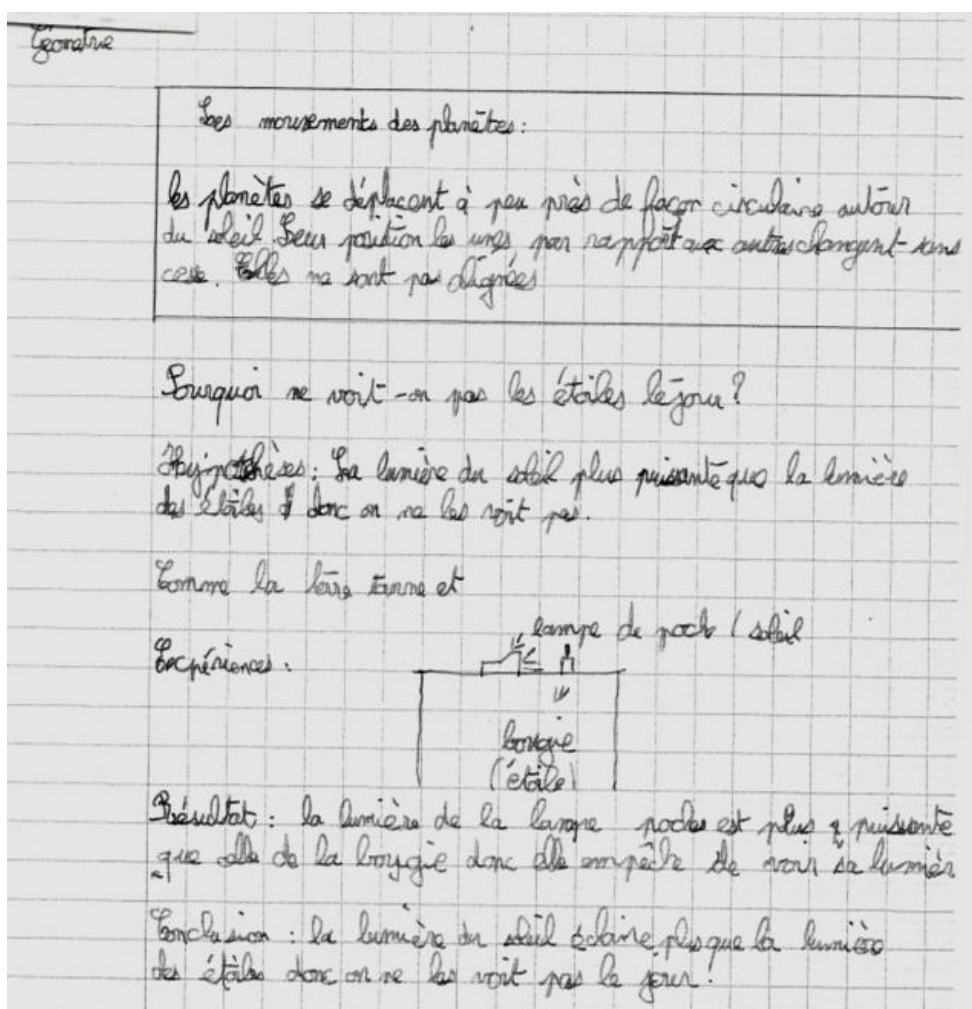 Géometrie
Les mouvements des planètes :
les planètes se déplacent à peu près de façon circulaire autour
du soleil. Leur position les unes par rapport aux autres changent sans
cesse. Elles ne sont pas alignées
Pourquoi ne voit-on pas les étoiles le jour ?
Hypothèses : La lumière du soleil plus puissante que la lumière
des étoiles donc on ne les voit pas.
Comme la terre tourne et
lampe de poche (soleil
Expériences :
bougie
(étoile)
Résultat : la lumière de la lampe poche est plus puissante
que celle de la bougie donc elle empêche de voir sa lumièr
Conclusion : la lumière du soleil éclaire plus que la lumière
des étoiles donc on ne les voit pas le jour !